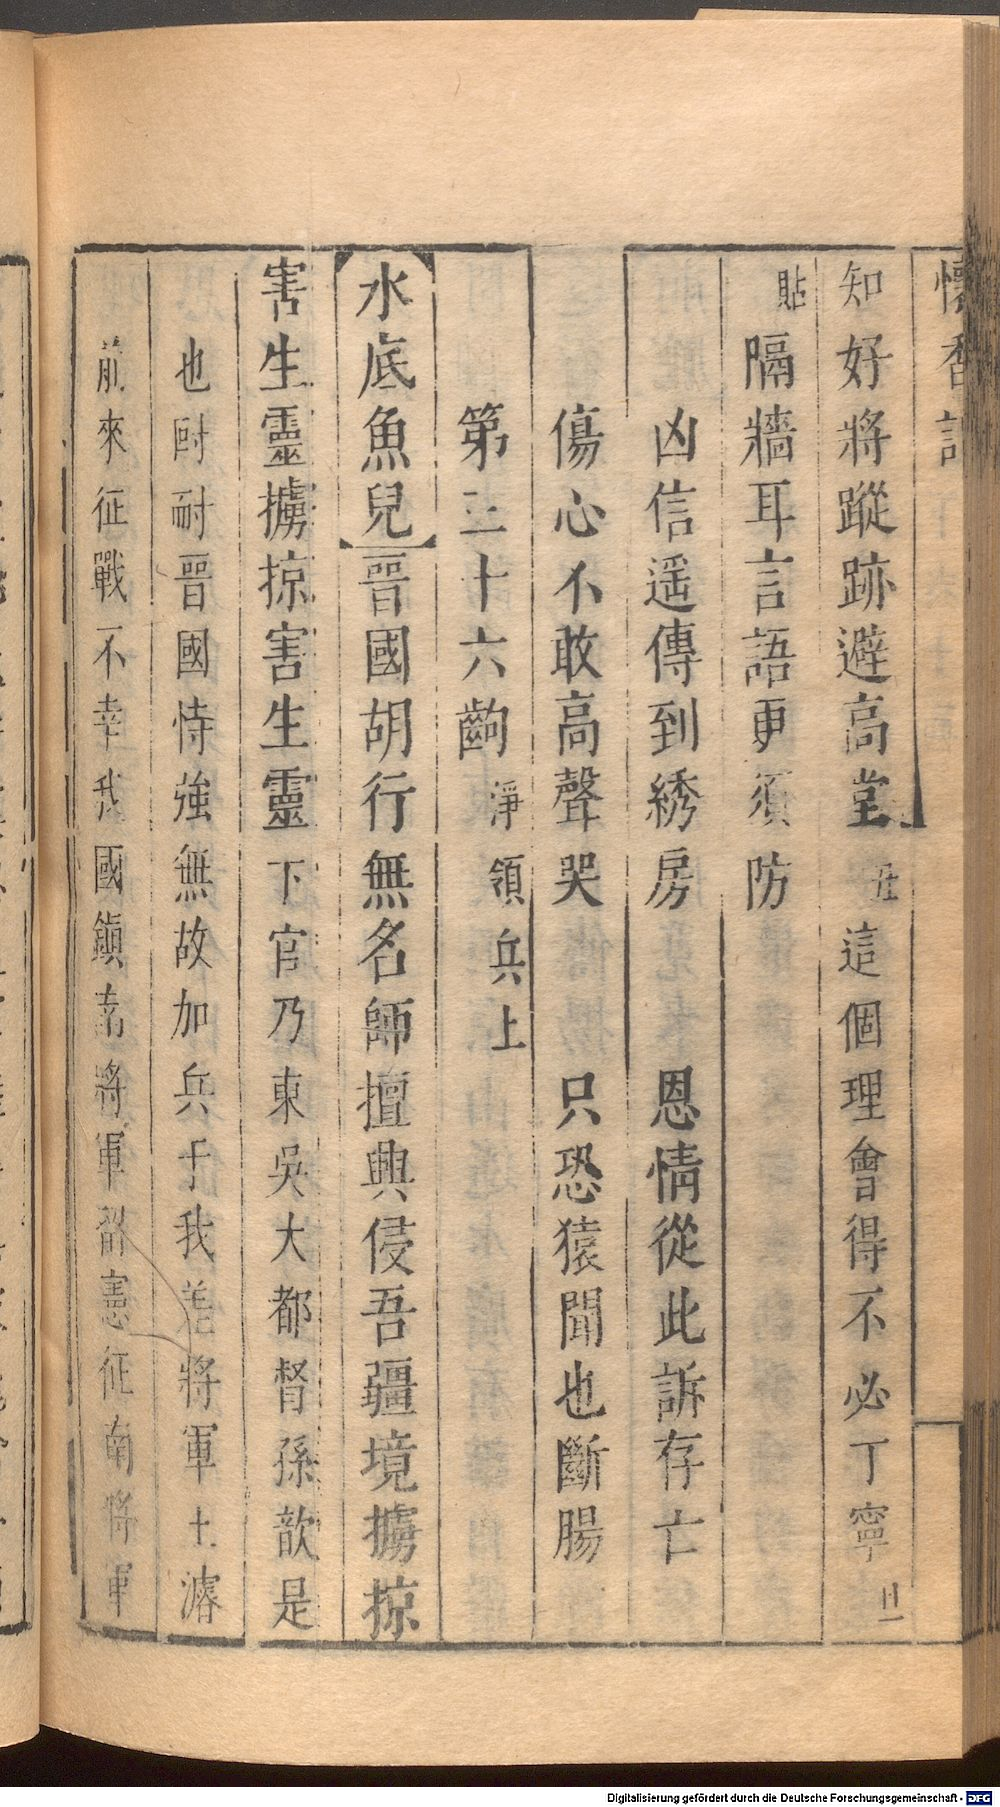 懷香記
知好將蹤跡避高堂 丑 這個理會得不必丁寧 旦
貼 隔牆耳言語更須防
凶信遥傳到綉房 恩情從此訴存亡
傷心不敢高聲哭 只恐猿聞也斷腸
第二十六齣 淨領兵上
水底魚兒 晉國胡行無名師擅興侵吾疆境擄掠
害生靈擄掠害生靈 下官乃東吳大都督孫歆是
也尀耐晉國恃強無故加兵于我差將軍王濬
前來征戰不幸我國鎮南將軍留憲征南將軍
Digitalisierung gefördert durch die Deutsche Forschungsgemeinschaft - DFG